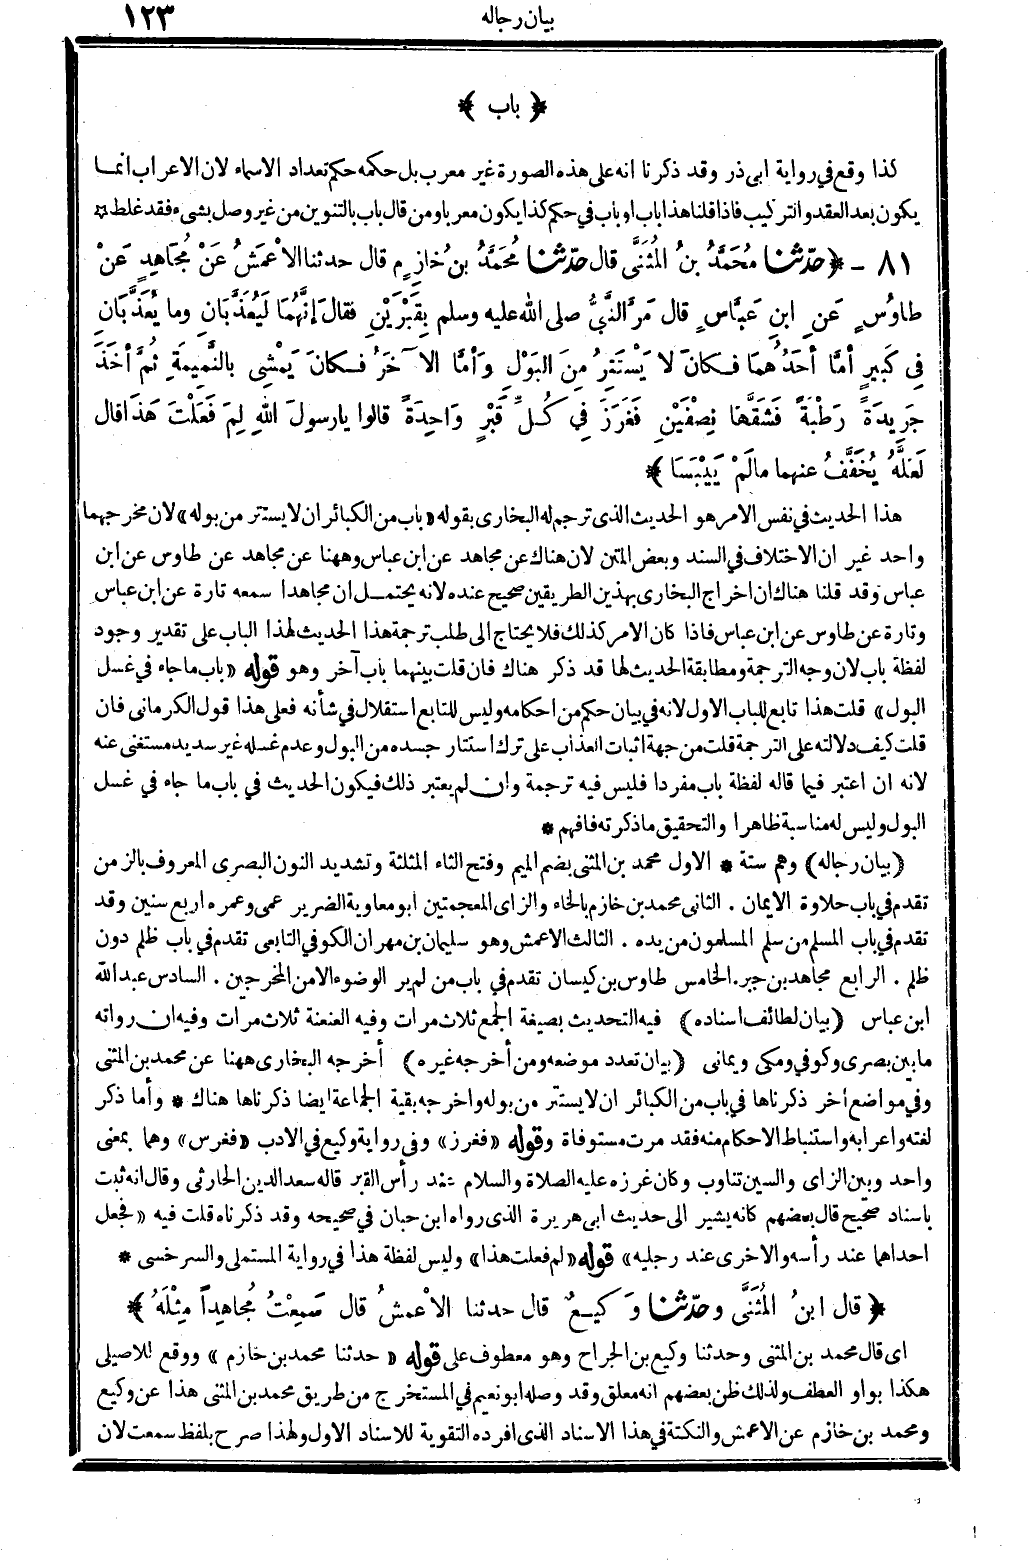 بيان رجاله
١٢٣
﴿ باب ﴾
كذا وقع في رواية ابى ذر وقد ذكرنا انه على هذه الصورة غير معرب بل حكمه حكم تعداد الاسماء لان الاعراب انما
يكون بعد العقد والتركيب فاذا قلنا هذا باب او باب في حكم كذا يكون معربا ومن قال باب بالتنوين من غير وصل بشىء فقد غلط *
٨١ - ﴿ حدّثنا مُحَمَّدُ بنُ المُثَنَّى قال حدّثنا مُحَمَّدُ بن خازِمٍ قال حدثنا الاَعْمَشُ عَنْ مُجَاهِدٍ عَنْ
طاوُسٍ عَنِ ابنِ عَبَّاسٍ قال مَرَّ النَّبيُّ صلى الله عليه وسلم بِقَبْرَيْنِ فقال إنَّهُمَا لَيُعَذَّبَانِ وما يُعَذَّبَانِ
فِي كَبِيرٍ أمَّا أحَدُهُما فكانَ لا يَسْتَتِرُ مِنَ البَوْلِ وَأمَّا الآخَرُ فكانَ يَمْشِى بالنَّمِيمَةِ ثُمَّ أخَذَ
جَرِيدَةً رَطْبَةً فَشَقَّهَا نِصْفَيْنِ فَغَرَزَ فِي كُلِّ قَبْرٍ وَاحِدَةً قالوا يا رسولَ اللهِ لِمَ فَعَلْتَ هَذَا قال
لَعَلَّهُ يُخَفَّفُ عنهما مالَمْ يَيْبَسَا ﴾
هذا الحديث في نفس الامر هو الحديث الذى ترجم له البخارى بقوله «باب من الكبائر ان لا يستتر من بوله» لان مخرجهما
واحد غير ان الاختلاف في السند وبعض المتن لان هناك عن مجاهد عن ابن عباس وههنا عن مجاهد عن طاوس عن ابن
عباس وقد قلنا هناك ان اخراج البخارى بهذين الطريقين صحيح عنده لانه يحتمل ان مجاهدا سمعه تارة عن ابن عباس
وتارة عن طاوس عن ابن عباس فاذا كان الامر كذلك فلا يحتاج الى طلب ترجمة هذا الحديث لهذا الباب على تقدير وجود
لفظة باب لان وجه الترجمة ومطابقة الحديث لها قد ذكر هناك فان قلت بينهما باب آخر وهو قوله «باب ما جاء في غسل
البول» قلت هذا تابع للباب الاول لانه في بيان حكم من احكامه وليس للتابع استقلال في شأنه فعلى هذا قول الكرمانى فان
قلت كيف دلالته على الترجمة قلت من جهة اثبات العذاب على ترك استتار جسده من البول وعدم غسله غير سديد مستغنى عنه
لانه ان اعتبر فيما قاله لفظة باب مفردا فليس فيه ترجمة وان لم يعتبر ذلك فيكون الحديث في باب ما جاء في غسل
البول وليس له مناسبة ظاهرا والتحقيق ما ذكرته فافهم *
(بيان رجاله) وهم ستة * الاول محمد بن المثنى بضم الميم وفتح الثاء المثلثة وتشديد النون البصرى المعروف بالزمن
تقدم في باب حلاوة الايمان . الثانى محمد بن خازم بالخاء والزاى المعجمتين ابو معاوية الضرير عمى وعمره اربع سنين وقد
تقدم في باب المسلم من سلم المسلمون من يده . الثالث الاعمش وهو سليمان بن مهران الكوفي التابعى تقدم في باب ظلم دون
ظلم . الرابع مجاهد بن جبر . الخامس طاوس بن كيسان تقدم في باب من لم ير الوضوء الا من المخرجين . السادس عبد الله
ابن عباس (بيان لطائف اسناده) فيه التحديث بصيغة الجمع ثلاث مرات وفيه العنعنة ثلاث مرات وفيه ان رواته
ما بين بصرى وكوفي ومكى ويمانى (بيان تعدد موضعه ومن أخرجه غيره) أخرجه البخارى ههنا عن محمد بن المثنى
وفي مواضع أخر ذكرناها في باب من الكبائر ان لا يستتر من بوله واخرجه بقية الجماعة ايضا ذكرناها هناك * وأما ذكر
لغته واعرابه واستنباط الاحكام منه فقد مرت مستوفاة وقوله «فغرز» وفي رواية وكيع في الادب «فغرس» وهما بمعنى
واحد وبين الزاى والسين تناوب وكان غرزه عليه الصلاة والسلام عند رأس القبر قاله سعد الدين الحارثى وقال انه ثبت
باسناد صحيح قال بعضهم كانه يشير الى حديث ابى هريرة الذى رواه ابن حبان في صحيحه وقد ذكرناه قلت فيه «فجعل
احداهما عند رأسه والاخرى عند رجليه» قوله «لم فعلت هذا» وليس لفظة هذا في رواية المستملى والسرخسى *
﴿ قال ابنُ المُثَنَّى وحدّثنا وَكِيعٌ قال حدثنا الأعْمَشُ قال سَمِعْتُ مُجَاهِداً مِثْلَهُ ﴾
اى قال محمد بن المثنى وحدثنا وكيع بن الجراح وهو معطوف على قوله «حدثنا محمد بن خازم» ووقع للاصيلى
هكذا بواو العطف ولذلك ظن بعضهم انه معلق وقد وصله ابو نعيم في المستخرج من طريق محمد بن المثنى هذا عن وكيع
ومحمد بن خازم عن الاعمش والنكتة في هذا الاسناد الذى افرده التقوية للاسناد الاول ولهذا صرح بلفظ سمعت لان